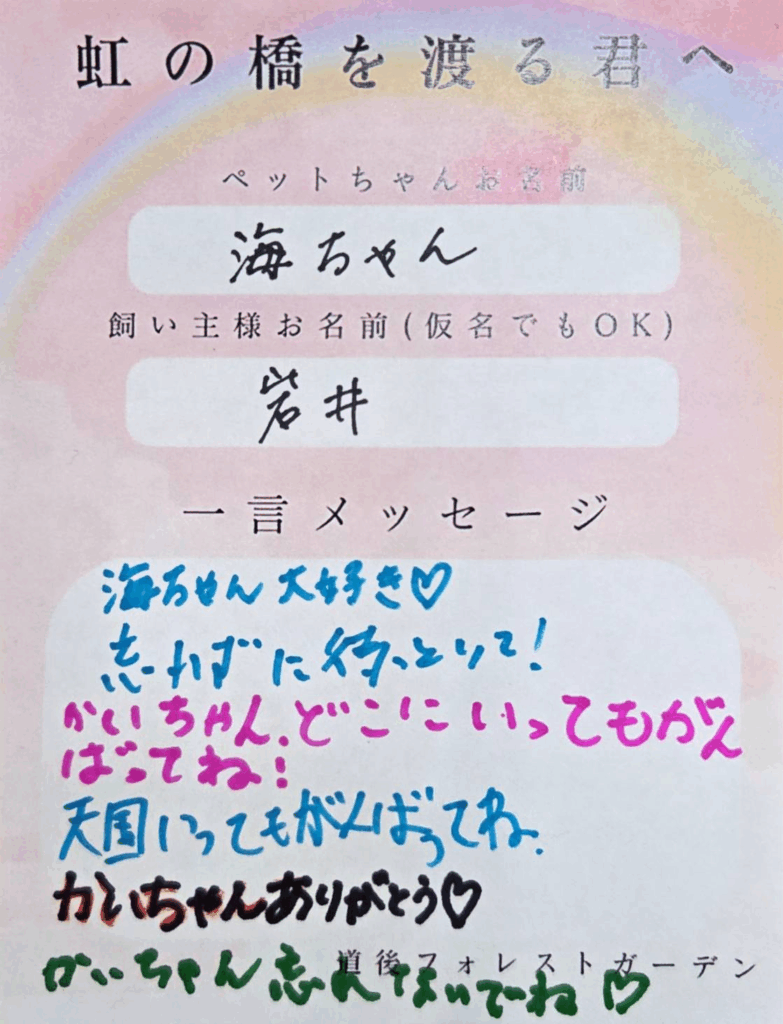 虹の橋を渡る君へ
ペットちゃんお名前
海ちゃん
飼い主様お名前(仮名でもOK)
岩井
一言メッセージ
海ちゃん大好き♡
忘れずに待っとりて!
かいちゃん、どこにいってもがん
ばってね!
天国いってもがんばってね。
かいちゃんありがとう♡
道後フォレストガーデン
かいちゃん忘れないでね♡